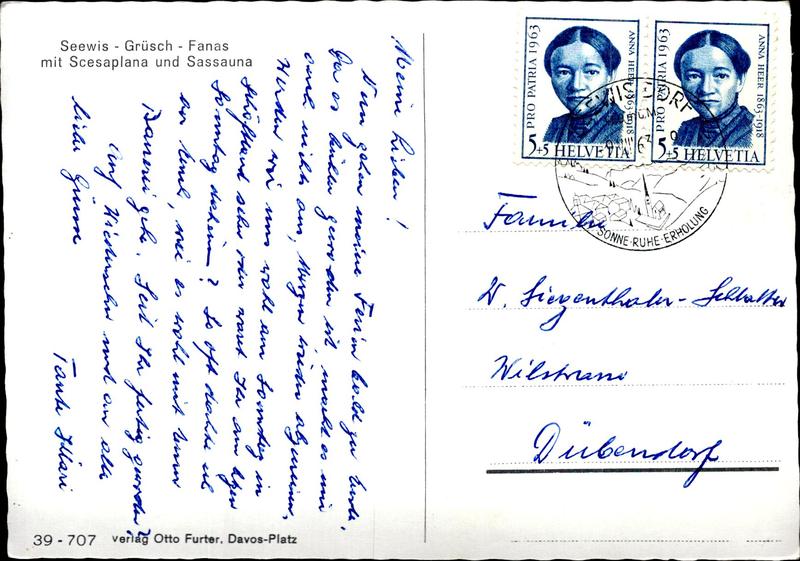 Seewis - Grüsch - Fanas
mit Scesaplana und Sassauna
Meine Lieben!
Nun gehen meine Ferien bald zu Ende,
Da es kühler geworden ist, macht es mir
auch nichts aus, Morgen wieder abzureisen,
Werden wir uns wohl am Sonntag in
Schöftland sehn oder wart Ihr am letzten
Sonntag daheim? So oft dachte ich
an Euch, wie es wohl mit
gehe. Seid Ihr fertig geworden?
Auf Wiedersehn und an alle
liebe Grüsse
Tante
39 - 707 Verlag Otto Furter, Davos-Platz
PRO PATRIA 1963
ANNA HEER 1863-1918
5+5 HELVETIA
PRO PATRIA 1963
ANNA HEER 1863-1918
5+5 HELVETIA
SEEWIS DORF
SONNE·RUHE·ERHOLUNG
Familie
W. Siegenthaler-Schlatter
Wilstrasse
Dübendorf